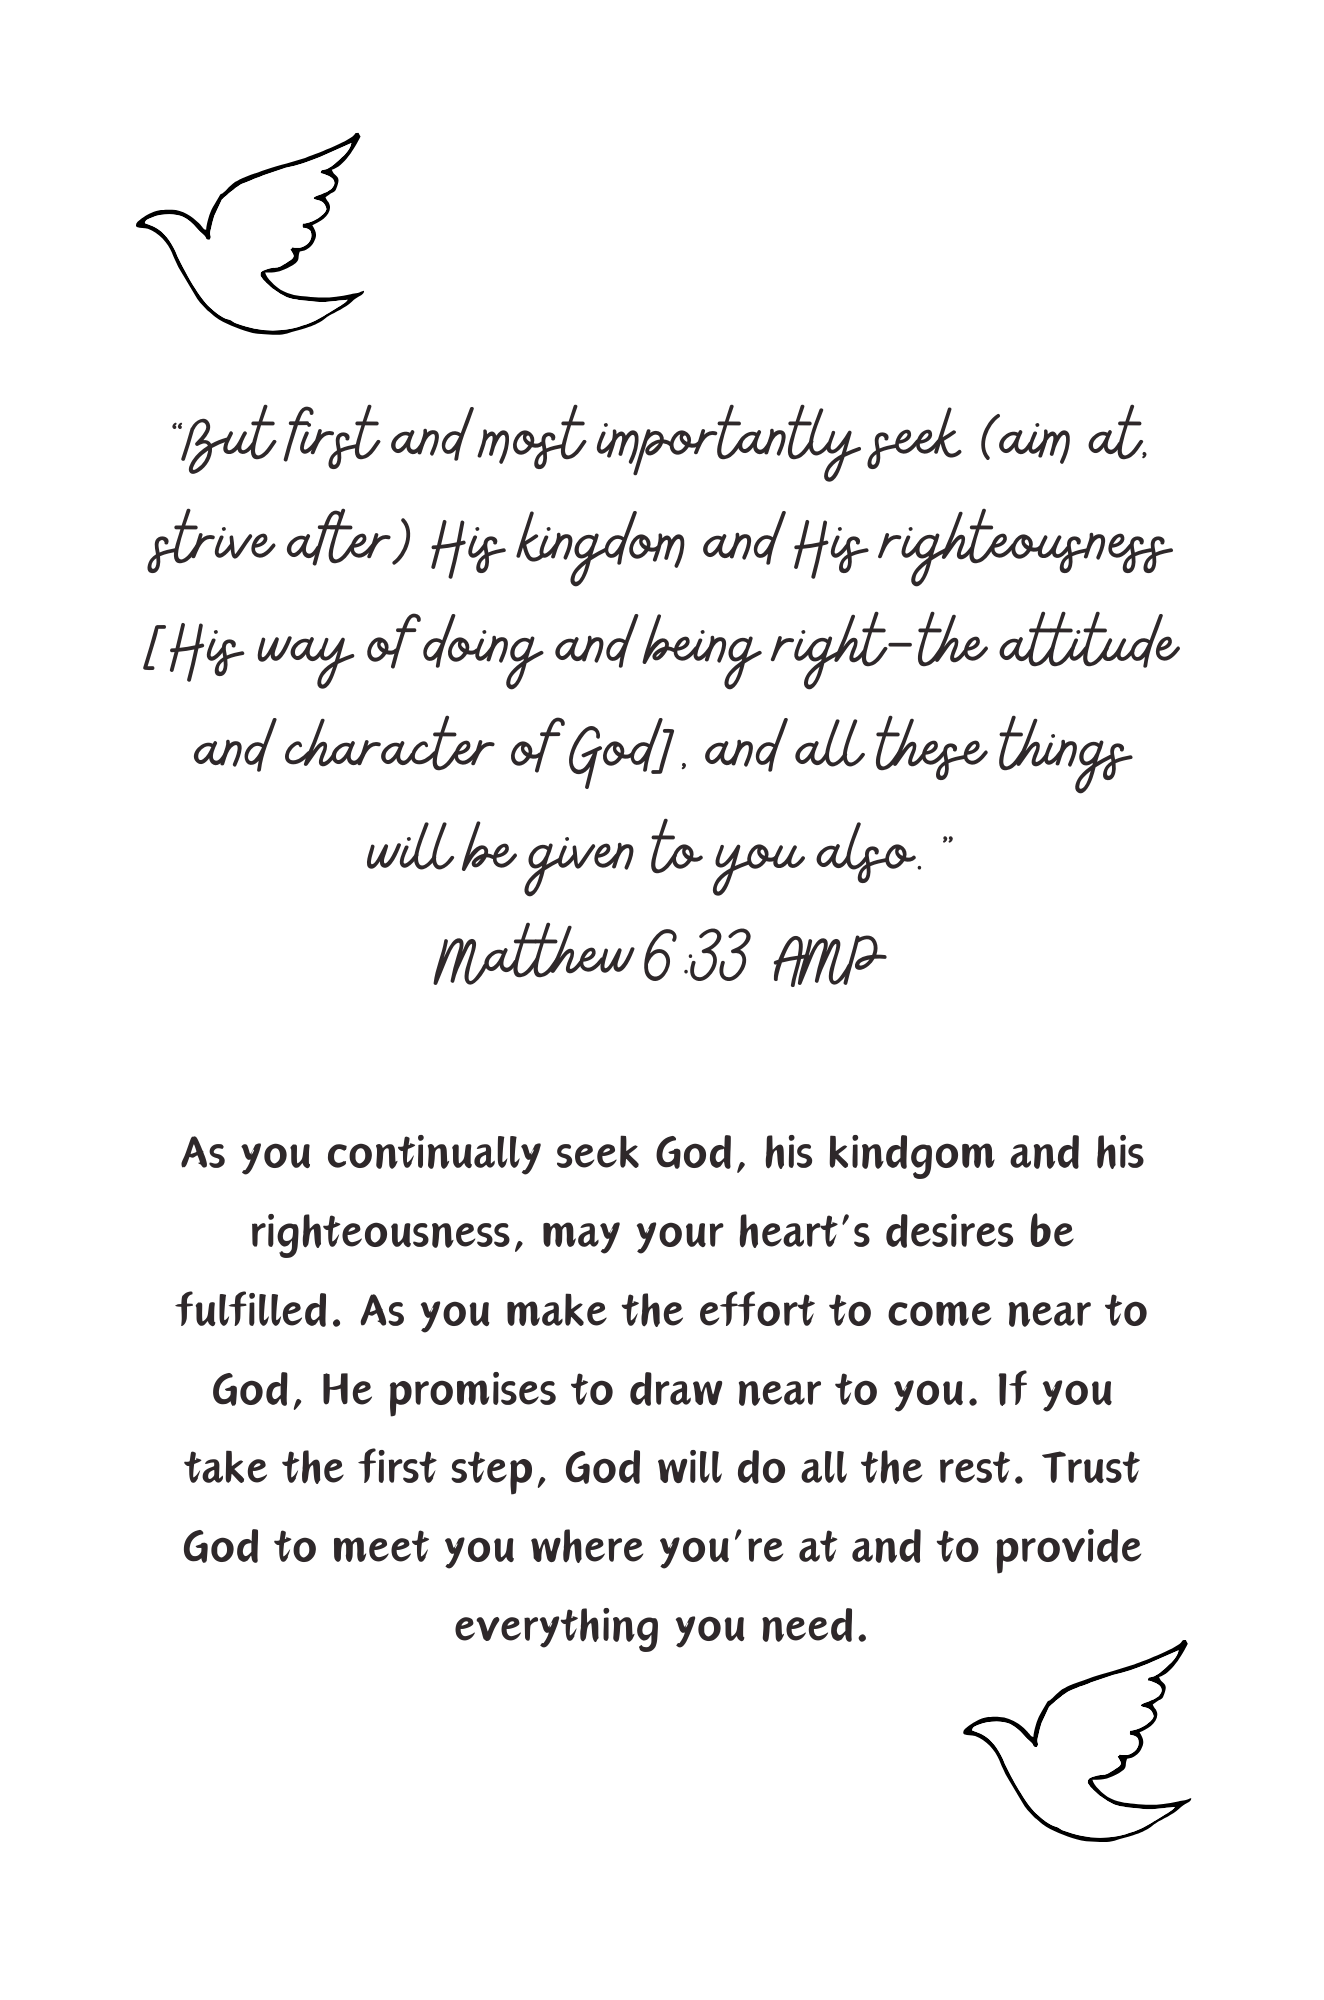 “But first and most importantly seek (aim at,
strive after) His kingdom and His righteousness
[His way of doing and being right—the attitude
and character of God], and all these things
will be given to you also. ”
Matthew 6:33 AMP
As you continually seek God, his kindgom and his
righteousness, may your heart's desires be
fulfilled. As you make the effort to come near to
God, He promises to draw near to you. If you
take the first step, God will do all the rest. Trust
God to meet you where you're at and to provide
everything you need.